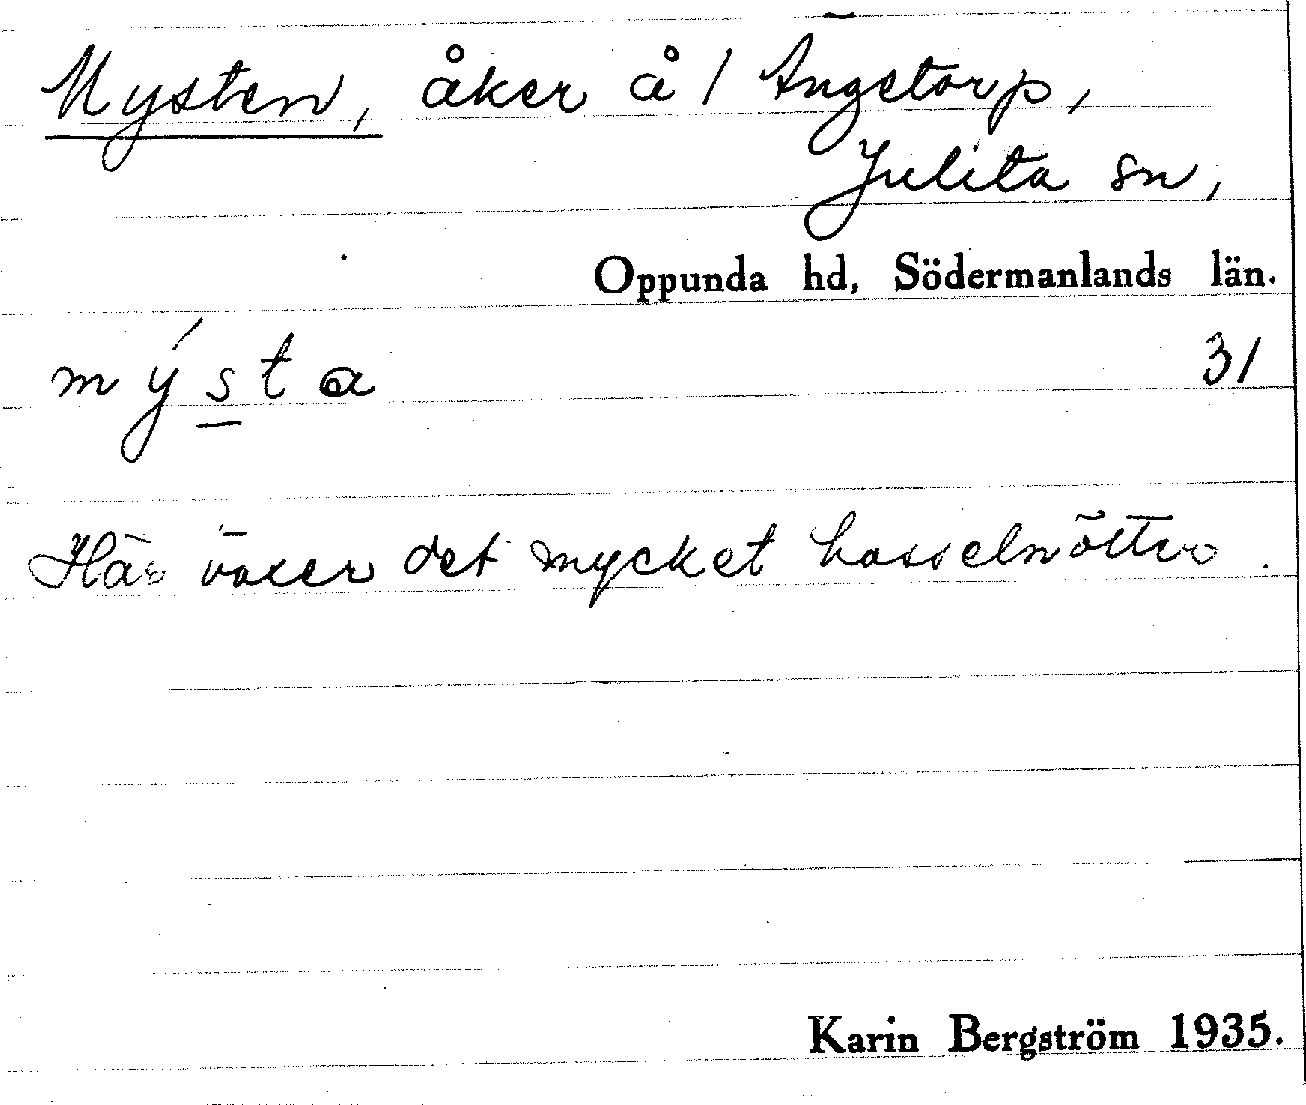 Mysten, åker å 1 Ängetorp,
Julita sn,
Oppunda hd, Södermanlands län.
mýsta 31
Här växer det mycket hasselnötter.
Karin Bergström 1935.